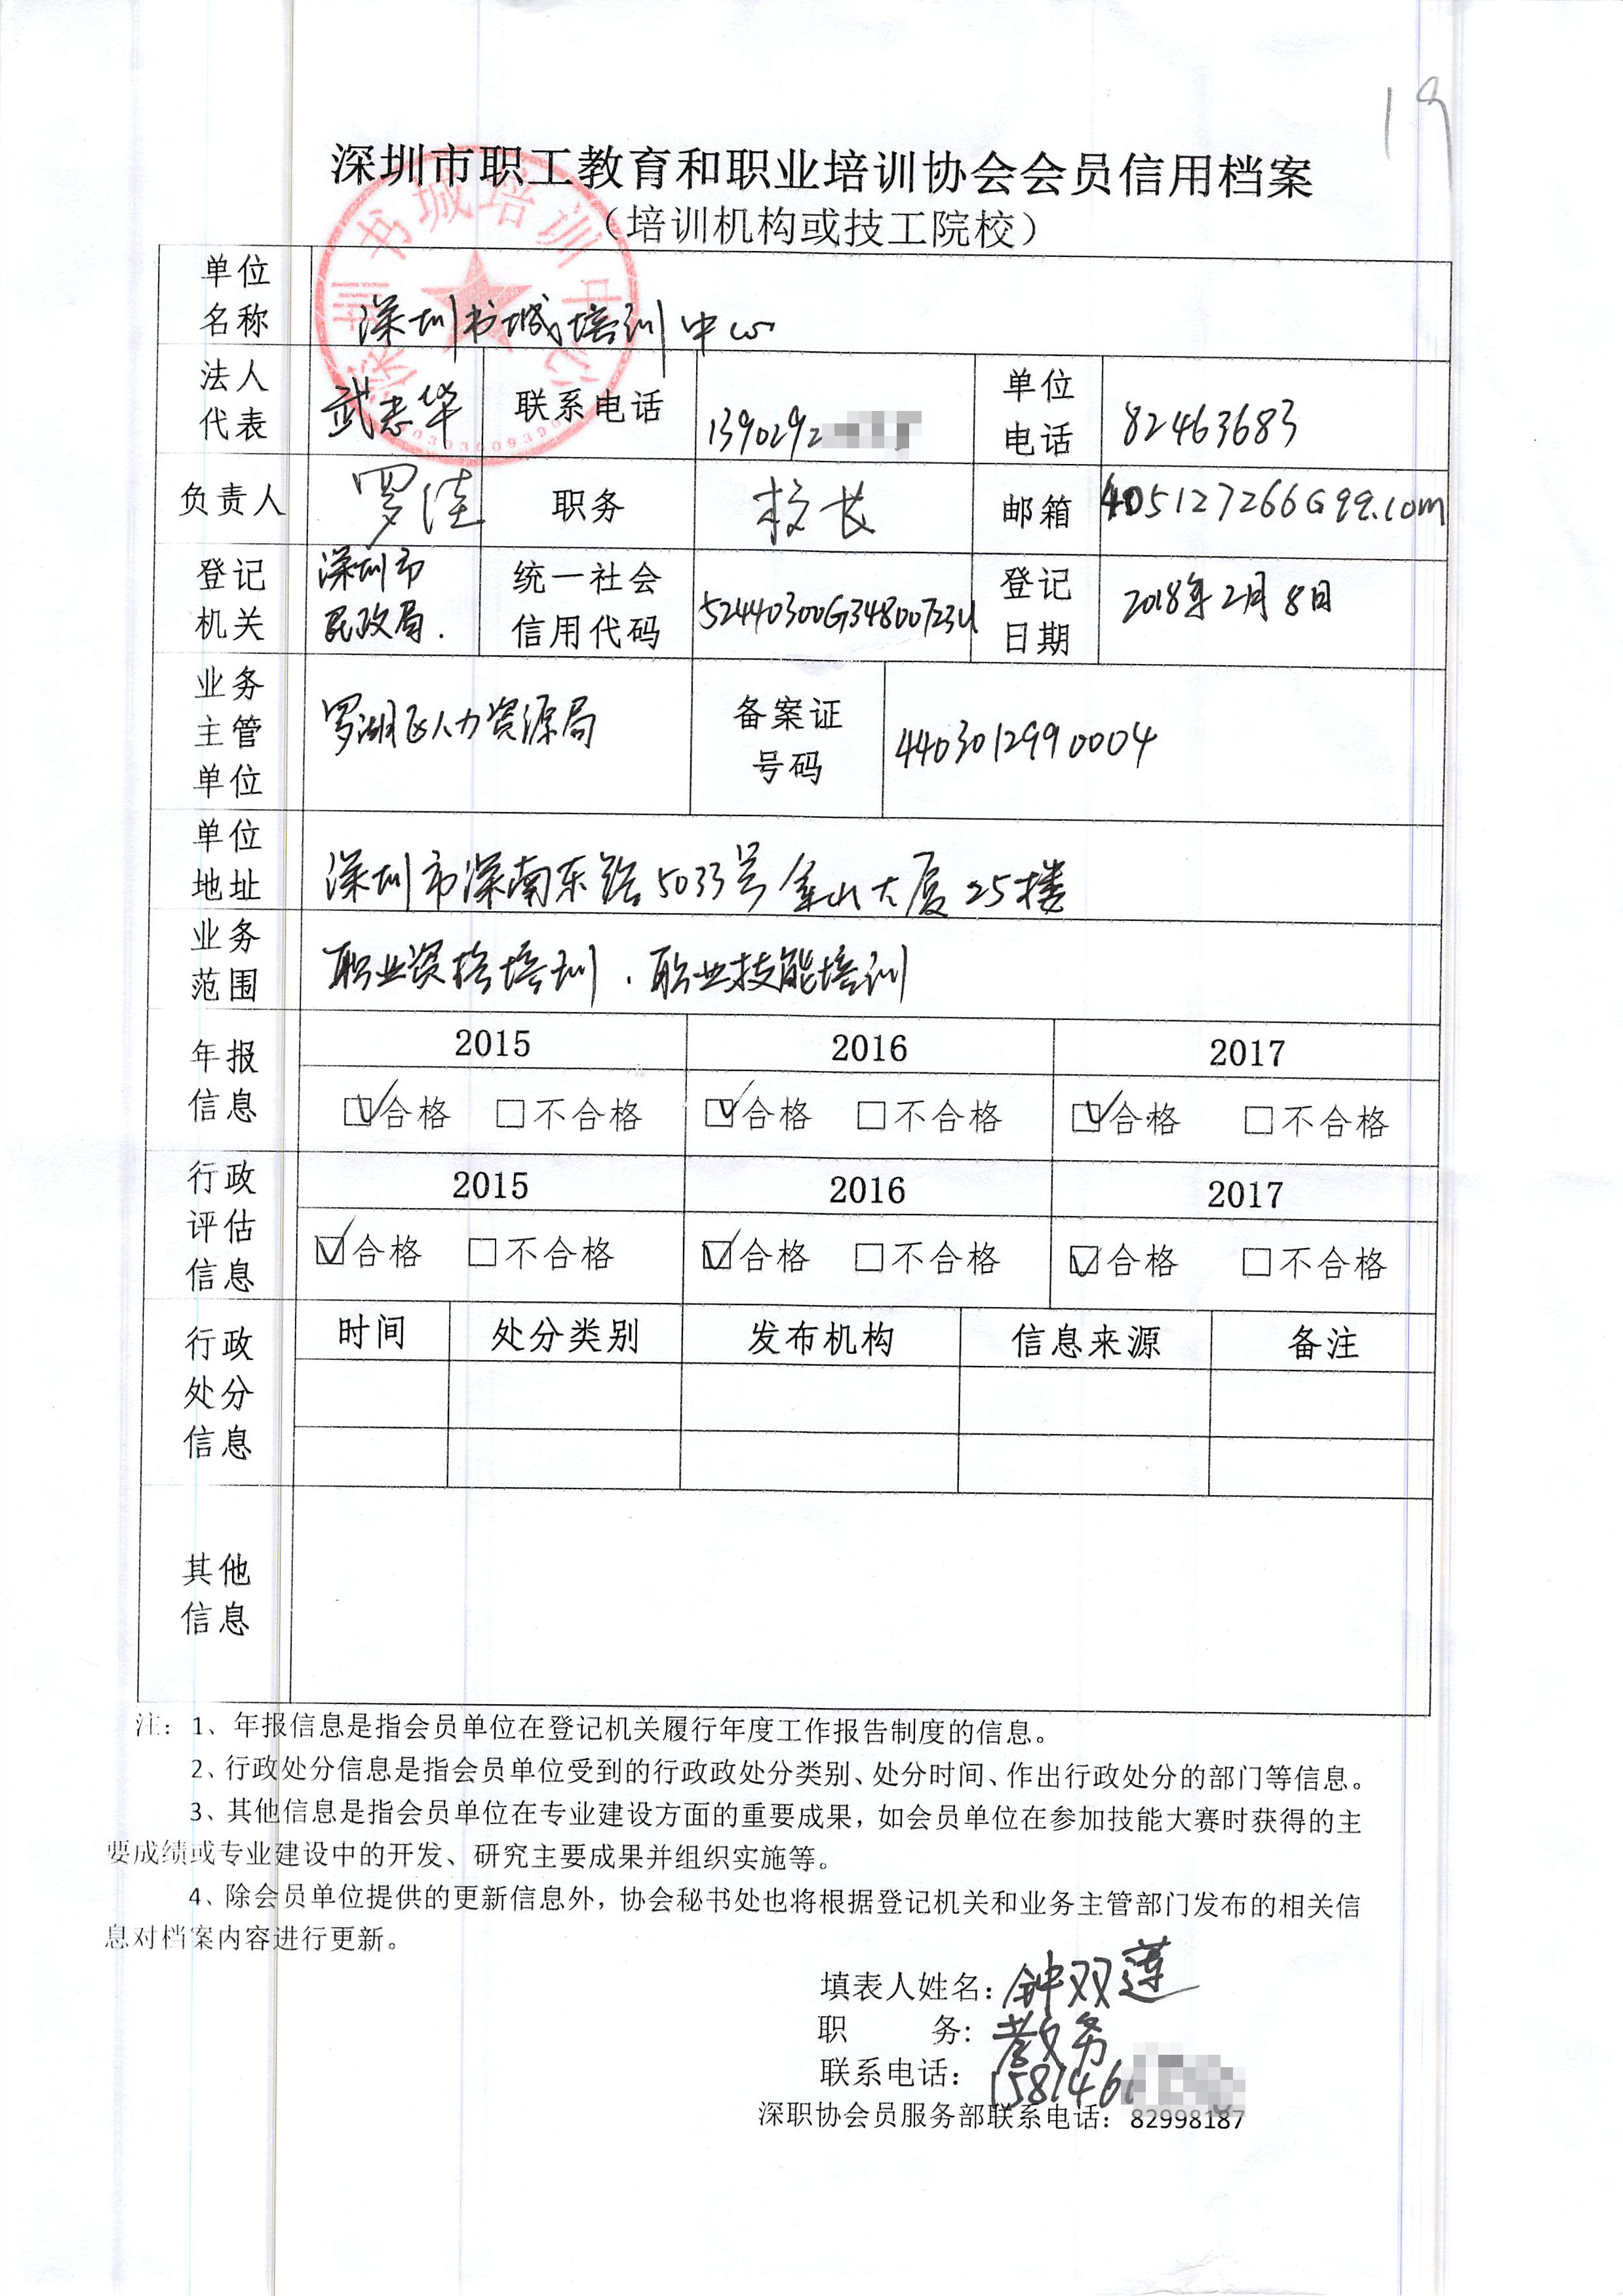 19
深圳市职工教育和职业培训协会会员信用档案
（培训机构或技工院校）
单位名称 深圳书城培训中心
法人代表 武志华 联系电话 1390292 单位电话 82463683
负责人 罗 职务 校长 邮箱 405127266@qq.com
登记机关 深圳市民政局. 统一社会信用代码 52440300G34800723U 登记日期 2018年2月8日
业务主管单位 罗湖区人力资源局 备案证号码 4403012990004
单位地址 深圳市深南东路5033号金山大厦25楼
业务范围 职业资格培训、职业技能培训
年报信息 2015 2016 2017
☑合格 □不合格 ☑合格 □不合格 ☑合格 □不合格
行政评估信息 2015 2016 2017
☑合格 □不合格 ☑合格 □不合格 ☑合格 □不合格
行政处分信息 时间 处分类别 发布机构 信息来源 备注
其他信息
注：1、年报信息是指会员单位在登记机关履行年度工作报告制度的信息。
2、行政处分信息是指会员单位受到的行政政处分类别、处分时间、作出行政处分的部门等信息。
3、其他信息是指会员单位在专业建设方面的重要成果，如会员单位在参加技能大赛时获得的主
要成绩或专业建设中的开发、研究主要成果并组织实施等。
4、除会员单位提供的更新信息外，协会秘书处也将根据登记机关和业务主管部门发布的相关信
息对档案内容进行更新。
填表人姓名：钟双莲
职 务：教务
联系电话：158146
深职协会员服务部联系电话：82998187
深圳书城培训中心